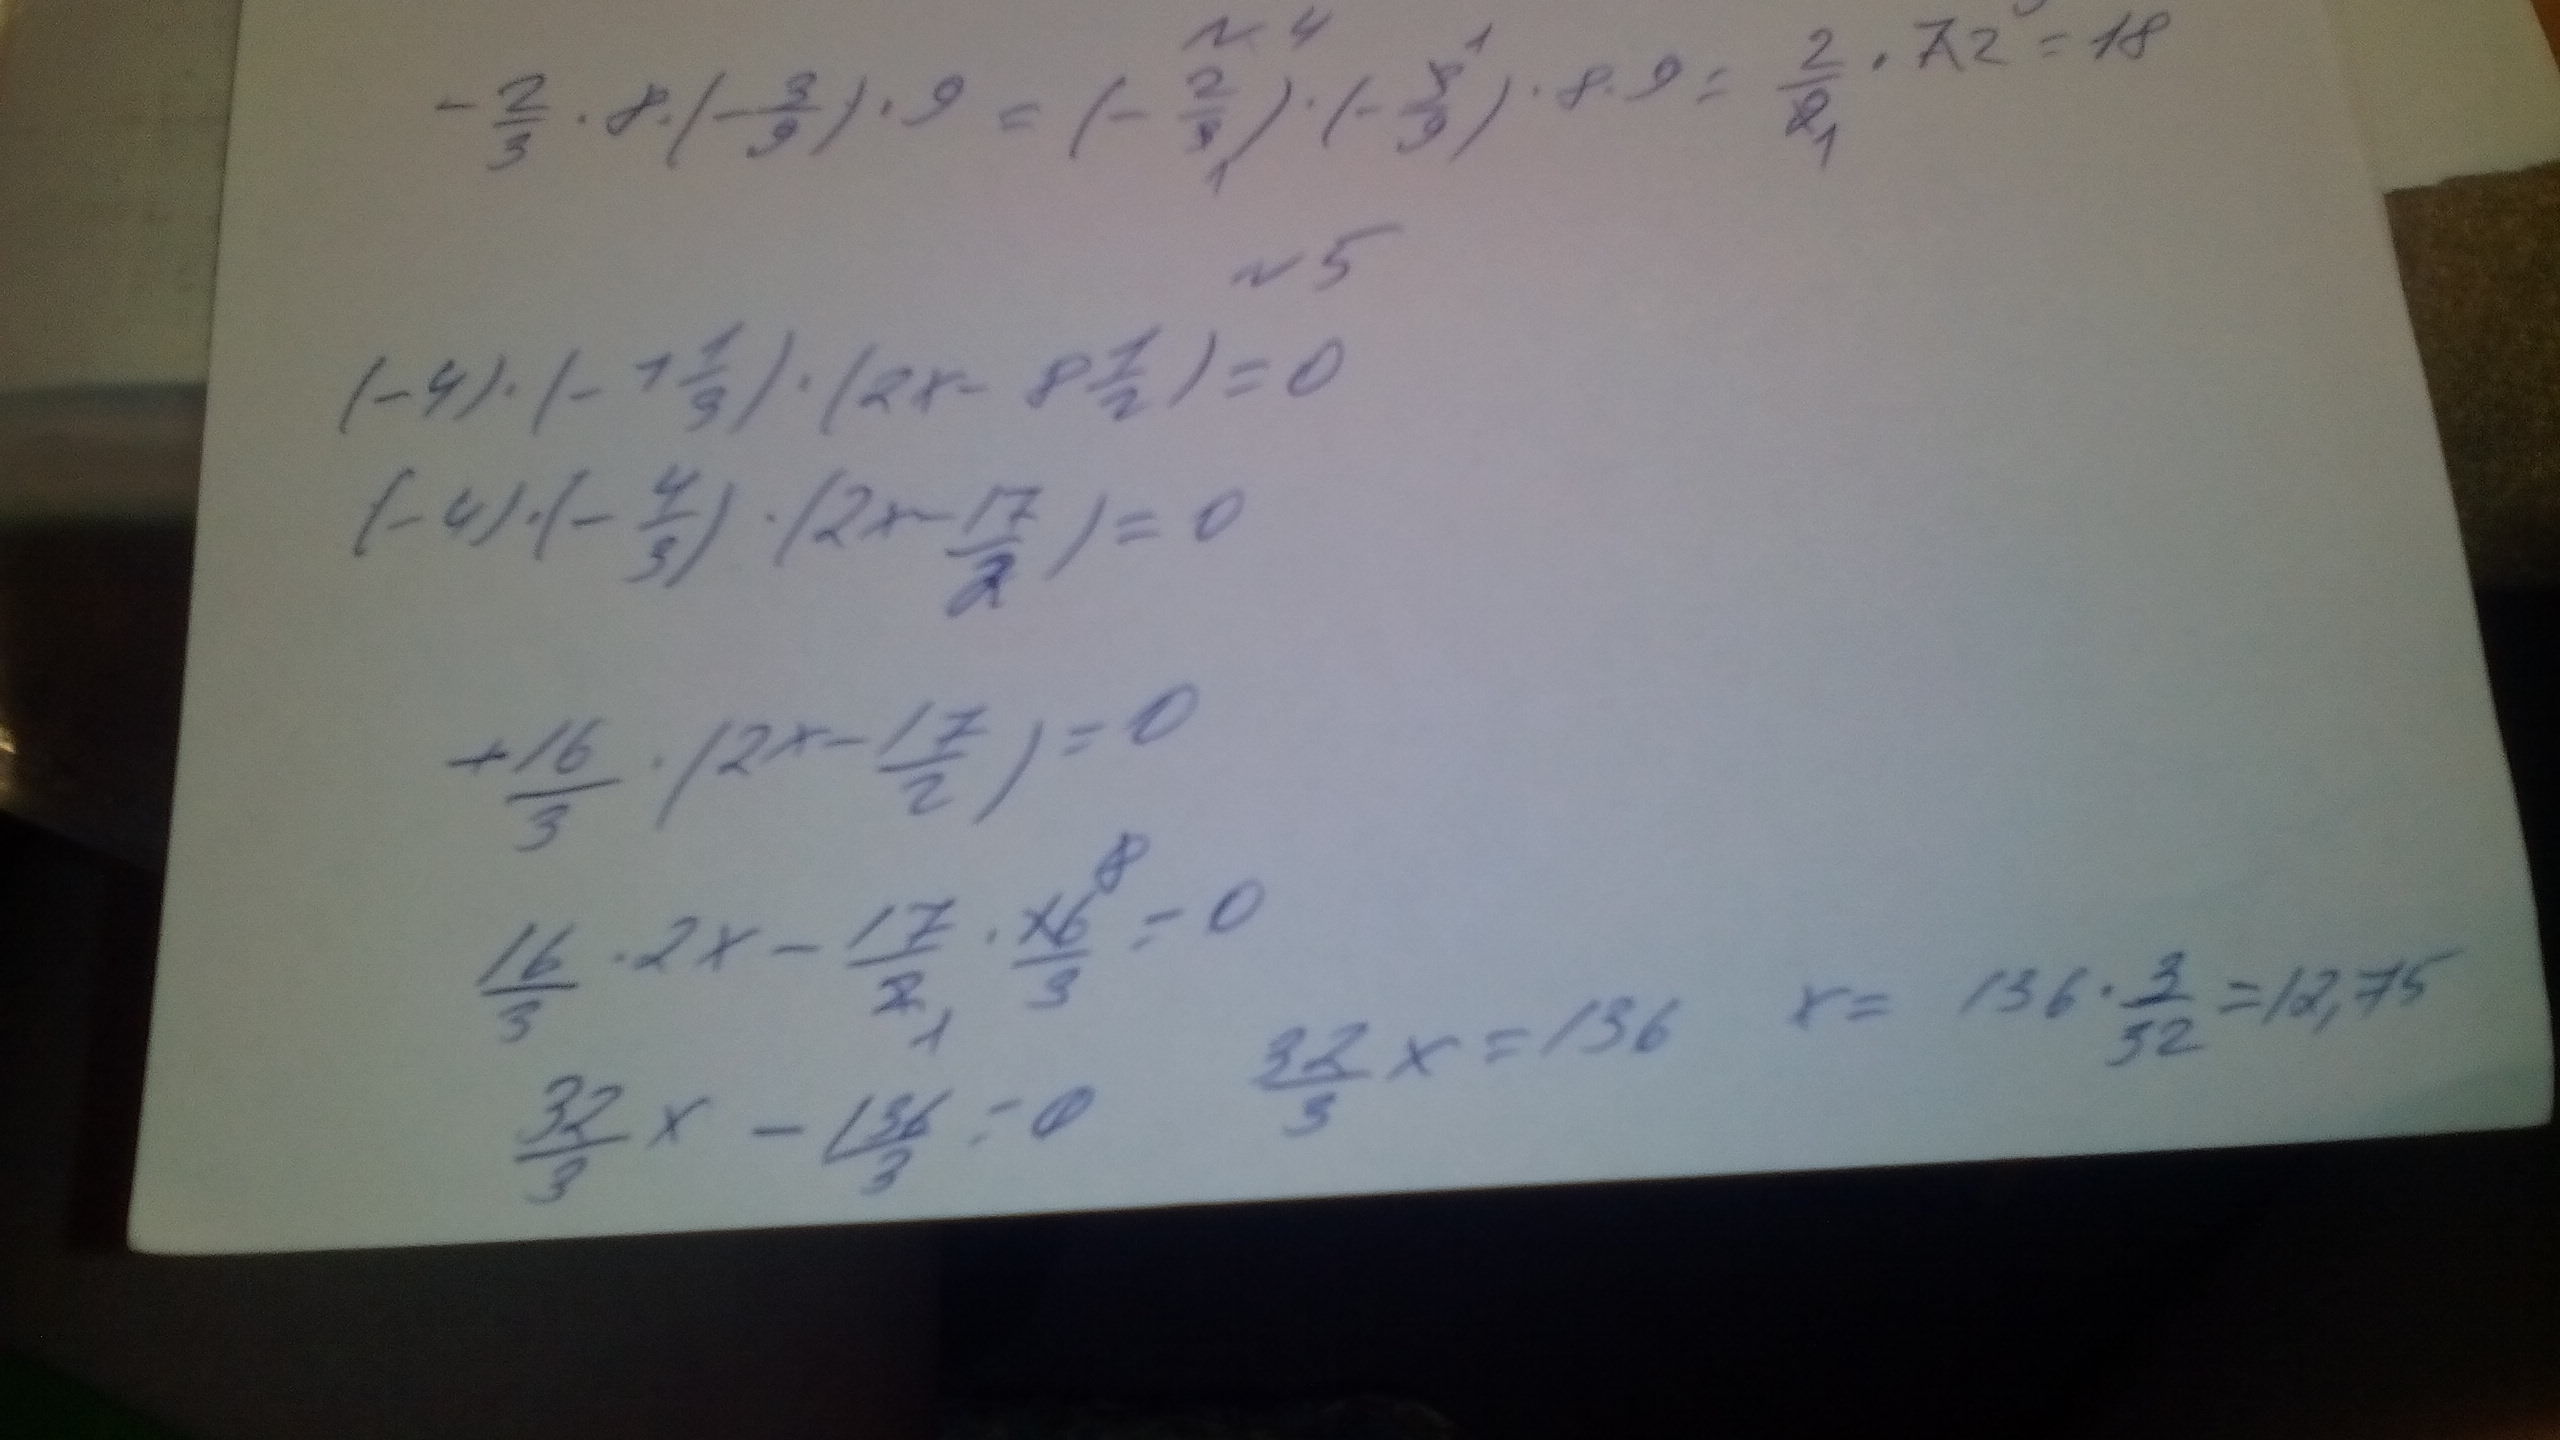 N 4
- 2/3 · 8 · (- 3/9) · 9 = (- 2/3 1) · (- 3/9 1) · 8 · 9 = 2/9 1 · 72 = 18
N 5
(-4) · (- 1 1/3) · (2x - 8 1/2) = 0
(-4) · (- 4/3) · (2x - 17/2) = 0
+ 16/3 · (2x - 17/2) = 0
16/3 · 2x - 17/2 1 · 16/3 8 = 0
32/3 x - 136/3 = 0 32/3 x = 136 x = 136 · 3/32 = 12,75